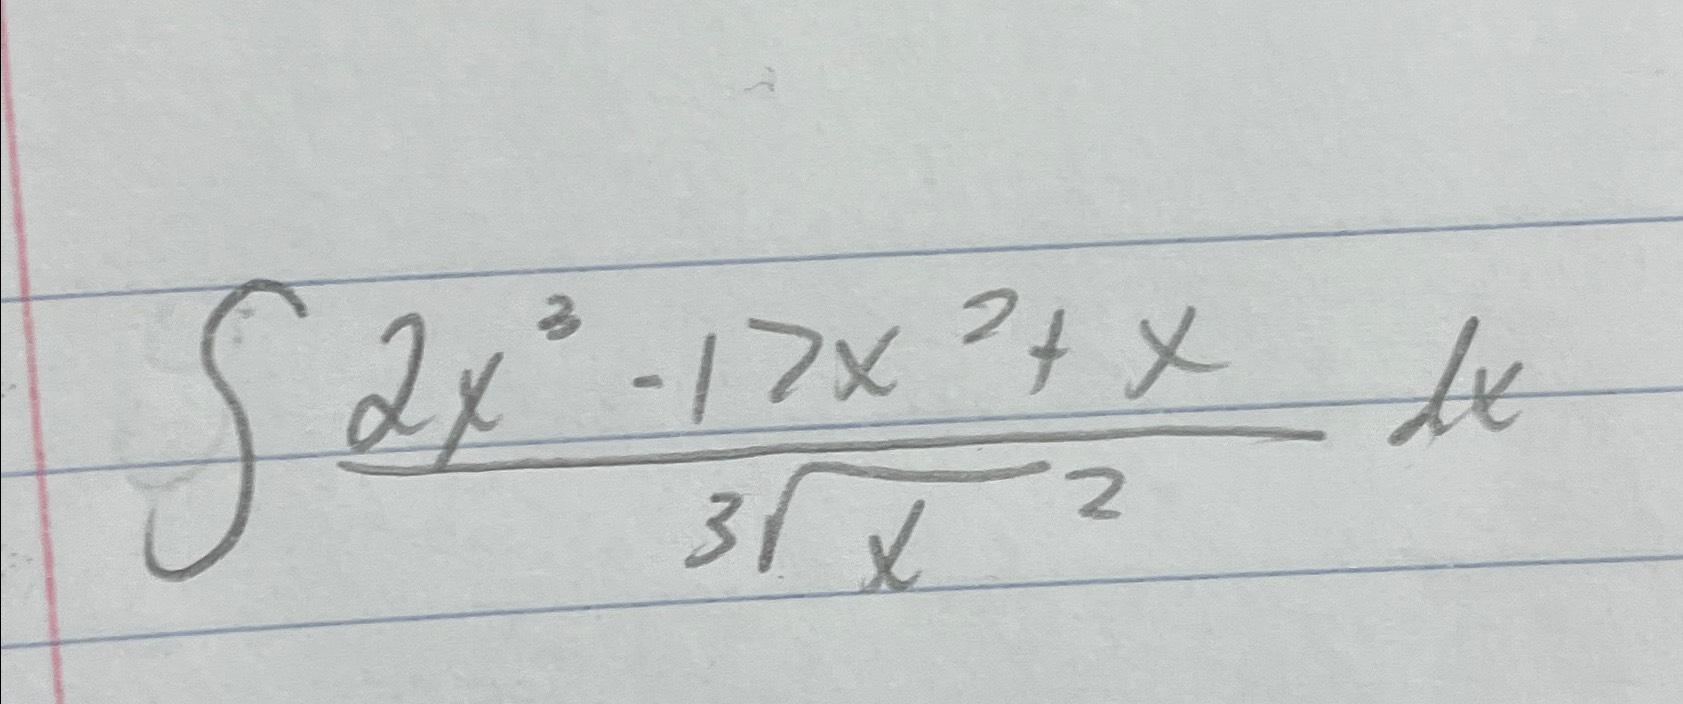 ∫ (2x³ - 17x² + x) / (3√x²) dx